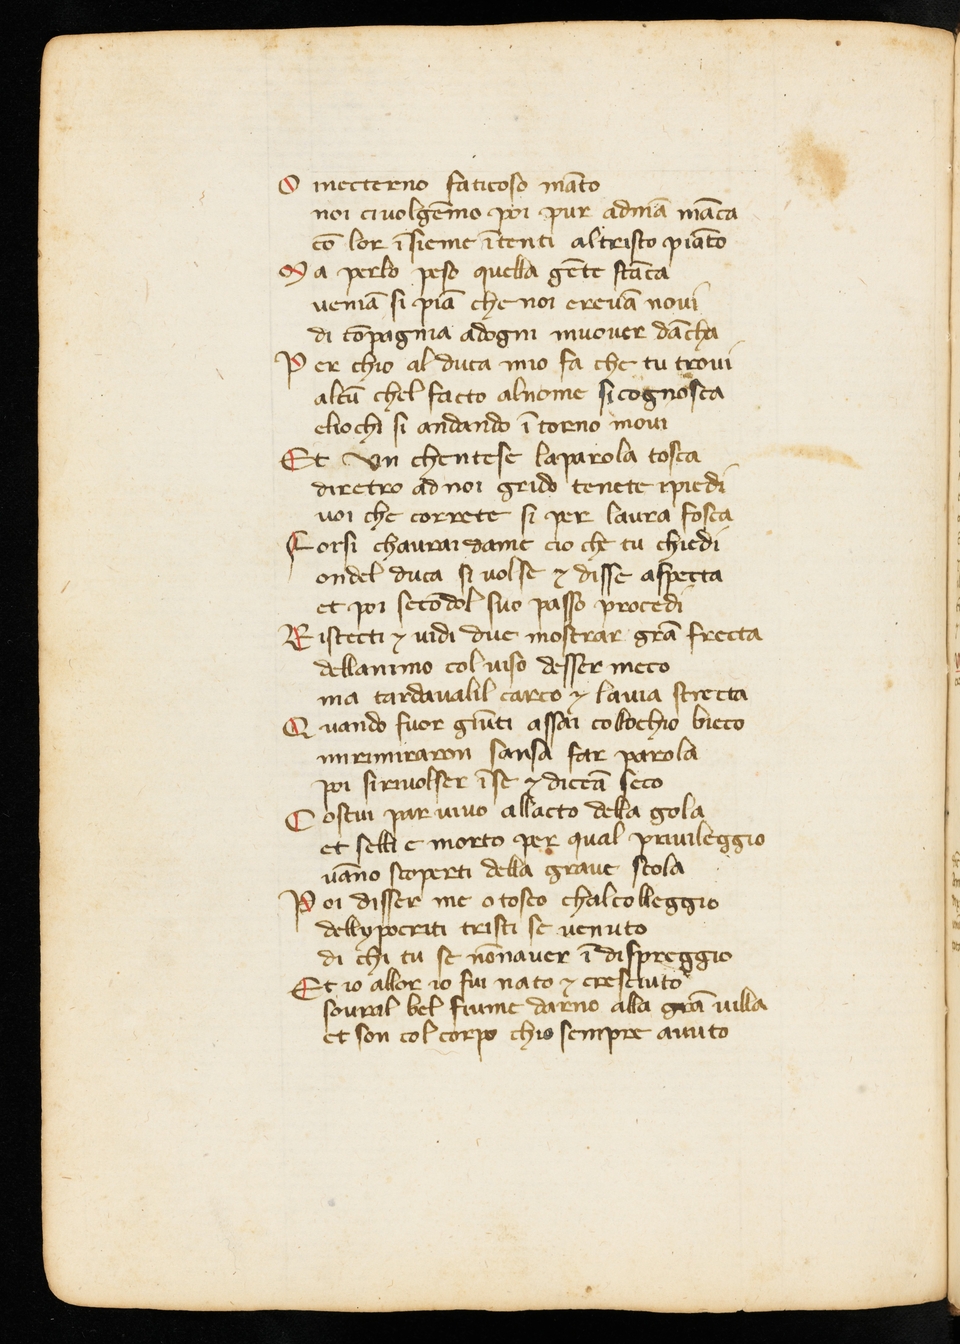 O inecterno faticoso mãto
noi ci volgẽmo poi pur admã mãca
cõ lor ĩsieme ĩtenti al tristo piãto
Ma perlo peso quella gẽte stãca
veniã si piã che noi erevã novi
di cõpagnia adogni muover dãcha
Per chio al duca mio fa che tu trovi
alcũ chel facto al nome si cognosca
eliochi si andando ĩ torno movi
Et vn chentese la parola tosca
diretro ad noi grido tenete i piedi
voi che correte si per laura fosca
Forsi chaurai dame cio che tu chiedi
ondel duca si volse ⁊ disse aspecta
et poi secõdol suo passo procedi
Ristecti ⁊ vidi due mostrar grã frecta
dellanimo col viso desser meco
ma tardavalil carco ⁊ la via strecta
Quando fuor giũti assai collochio bieco
mi rimiraron sansa far parola
poi si rivolser ĩ se ⁊ diceã seco
Costui par vivo allacto della gola
et selli e morto per qual privileggio
vãno scoperti della grave stola
Poi disser me o tosco chal colleggio
dellypocriti tristi se venuto
di chi tu se nõn aver ĩ dispreggio
Et io allor io fui nato ⁊ cresciuto
sovral bel fiume darno alla grã villa
et son col corpo chio sempre avuto